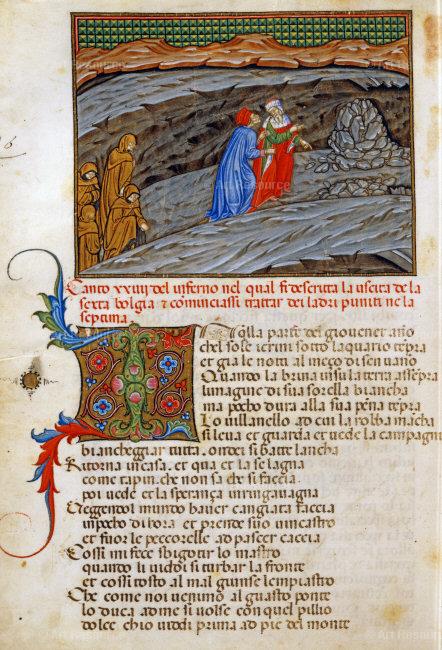 Canto xxiiij del inferno nel qual se descriva la uscita de la
sexta bolgia & cominciassi trattar dei ladri puniti ne la
septima
In quella parte del giovenet año
chel sole i crini sotto laquario tepra
et gia le notti al meço di sen vano
Quando la bruna in su la terra assepra
limagine di sua sorella biancha
ma pocho dura alla sua pena tepra
Lo villanello ad cui la robba mancha
si leva et guarda et vede la campagn
biancheggiar tutta ondei si batte lancha
Ritorna in casa et qua et la se lagna
come tapin che non sa che si faccia
poi vede et la sperança
Veggendol mundo haver cangiata faccia
in pocho di hora et prende suo vincastro
et fuor le peccorelle ad pascer caccia
Cossi mi fece sbigotir lo mastro
quando li vidi si turbar la fronte
et cossi tosto al mal giunse lempiastro
Che come noi venimo al guasto ponte
lo duca ad me si volse con quel pillio
dolce chio vidi prima ad pie del monte
Art Resource